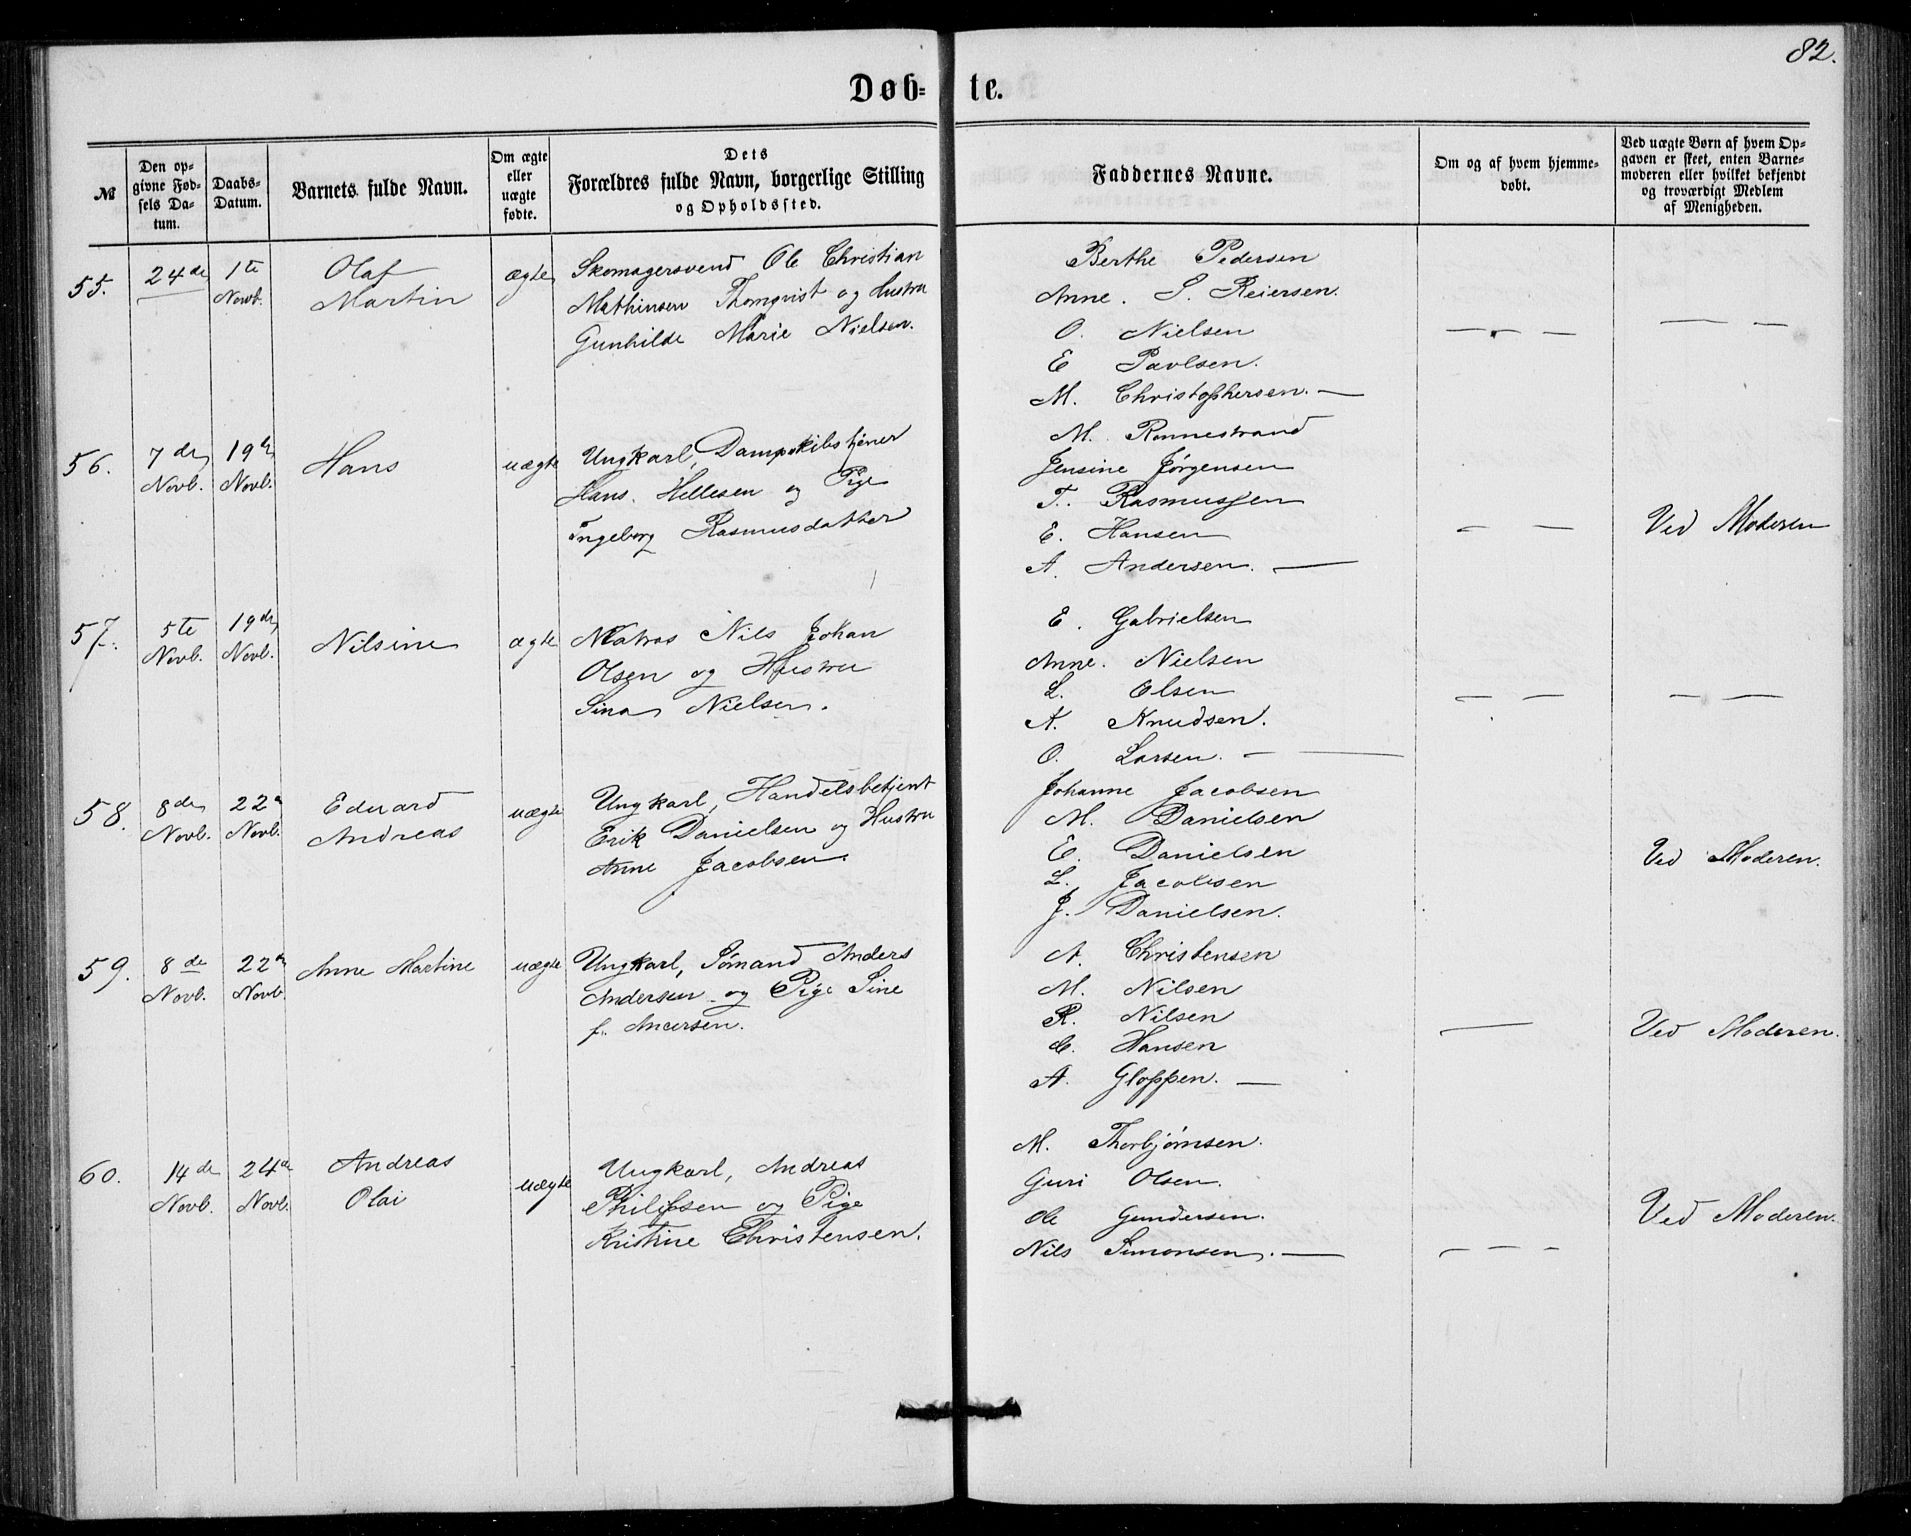 82.
Døb- te.
№
Den op-
givne Fød-
sels Da-
tum.
Daabs-
Datum.
Barnets fulde Navn.
Om ægte
eller
uægte
fødte.
Dets
Forældres fulde Navn, borgerlige Stilling
og Opholdssted.
Faddernes Navne.
Om og af hvem hjemme-
døbt.
Ved uægte Børn af hvem Op-
gaven er skeet, enten Barne-
moderen eller hvilket bekjendt
og troværdigt Medlem
af Menigheden.
55.
24de
1te
Novb.
Olaf
Martin
ægte
Skomagersvend Ole Christian
Mathinsen Thornqvist og Hustru
Gunhilde Marie Nielsen.
Berthe Pedersen
Anne. S. Reiersen.
O. Nielsen
E Pavlsen.
M. Christophersen. —
— — —
— —
56.
7de
Novb.
19de
Novb.
Hans
uægte
Ungkarl, Dampskibstjener
Hans. Hellesen og Pige
Ingeborg Rasmusdatter
M. Ronnestrand
Jensine Jørgensen
T. Rasmussen
E. Hansen
A. Andersen. —
— —
Ved Moderen
57.
5te
Novb.
19de
Novb.
Nilsine
ægte
Matros Nils Johan
Olsen og Hustru
Sina Nielsen.
E. Gabrielsen
Anne. Nielsen
L. Olsen
A. Knudsen.
O. Larsen. — —
— —
— —
58.
8de
Novb.
22de
Novb.
Edvard
Andreas
uægte
Ungkarl, Handelsbetjent
Erik Danielsen og Hustru
Anne Jacobsen.
Johanne Jacobsen
M. Danielsen
E. Danielsen
L. Jacobsen
J. Danielsen.
Ved Moderen.
59.
8de
Novb.
22de
Novb.
Anne Martine
uægte
Ungkarl, Sømand Anders
Andersen og Pige Sine
f. Andersen.
A. Christensen
M. Nilsen
R. Nilsen
C. Hansen
A. Gloppen. —
—
Ved Moderen.
60.
14de
Novb.
24de
Novb.
Andreas
Olai
uægte
Ungkarl, Andreas
Philipsen og Pige
Kristine Christensen.
M. Thorbjørnsen.
Guri Olsen.
Ole Gundersen.
Nils Simonsen. —
— — —
Ved Moderen.